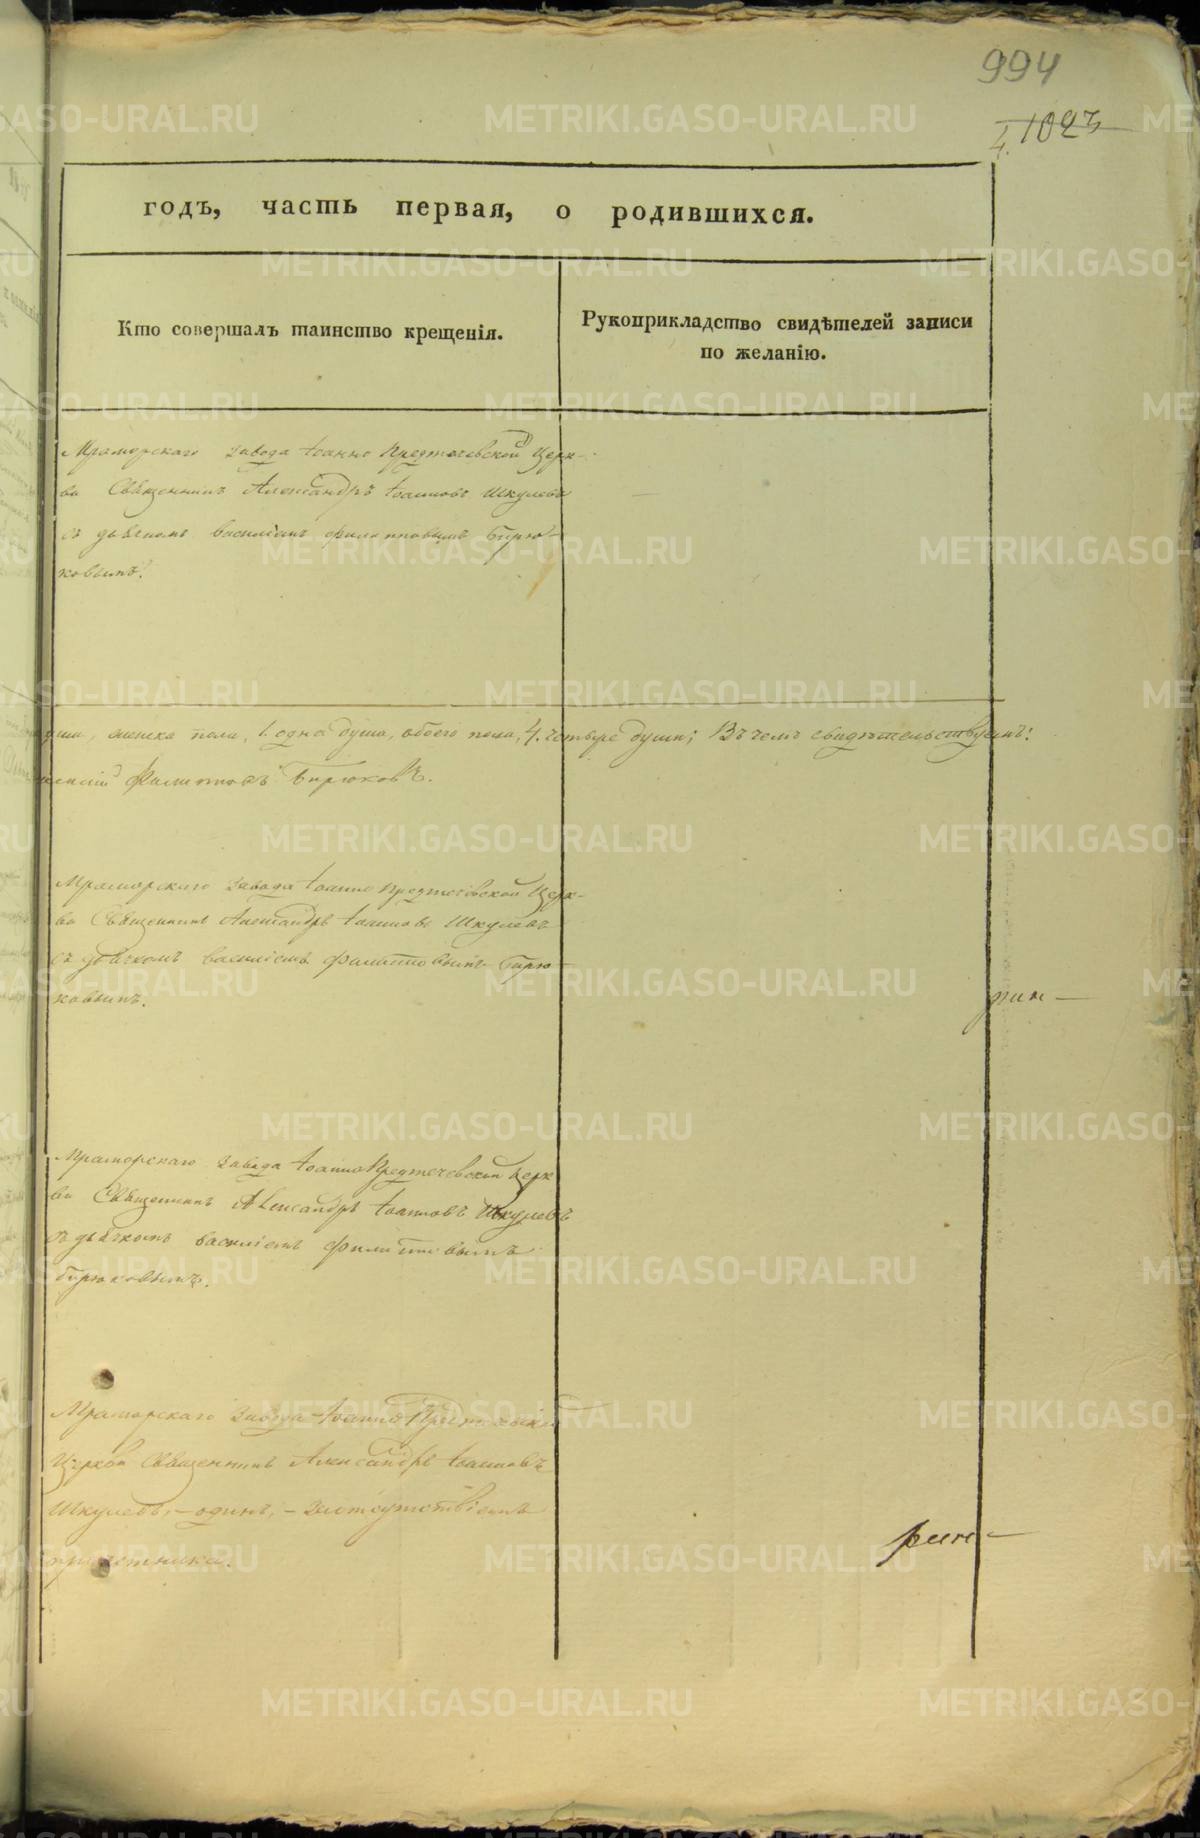 994
1023
годъ, часть первая, о родившихся.
Кто совершалъ таинство крещенія.
Рукоприкладство свидѣтелей записи
по желанію.
Мраморскаго завода Іоанно Предтечевской Церк-
ви Священникъ Александръ Іоанновъ Шкулевъ
съ дьячкомъ Василіемъ Филипповымъ Бирю-
ковымъ.
женска пола, 1. одна душа, обоего пола, 4. четыре души; Въ чемъ свидѣтельствуемъ:
Филипповъ Бирюковъ.
Мраморскаго завода Іоанно Предтечевской Церк-
ви Священникъ Александръ Іоанновъ Шкулевъ
съ дьячкомъ Василіемъ Филипповымъ Бирю-
ковымъ.
Мраморскаго завода Іоанно Предтечевской Церк
ви Священникъ Александръ Іоанновъ Шкулевъ
съ дьячкомъ Василіемъ Филипповымъ
Бирюковымъ.
Мраморскаго завода Іоанно Предтечевской
Церкви Священникъ Александръ Іоанновъ
Шкулевъ, – одинъ, – за отсутствіемъ
причетника.
METRIKI.GASO-URAL.RU